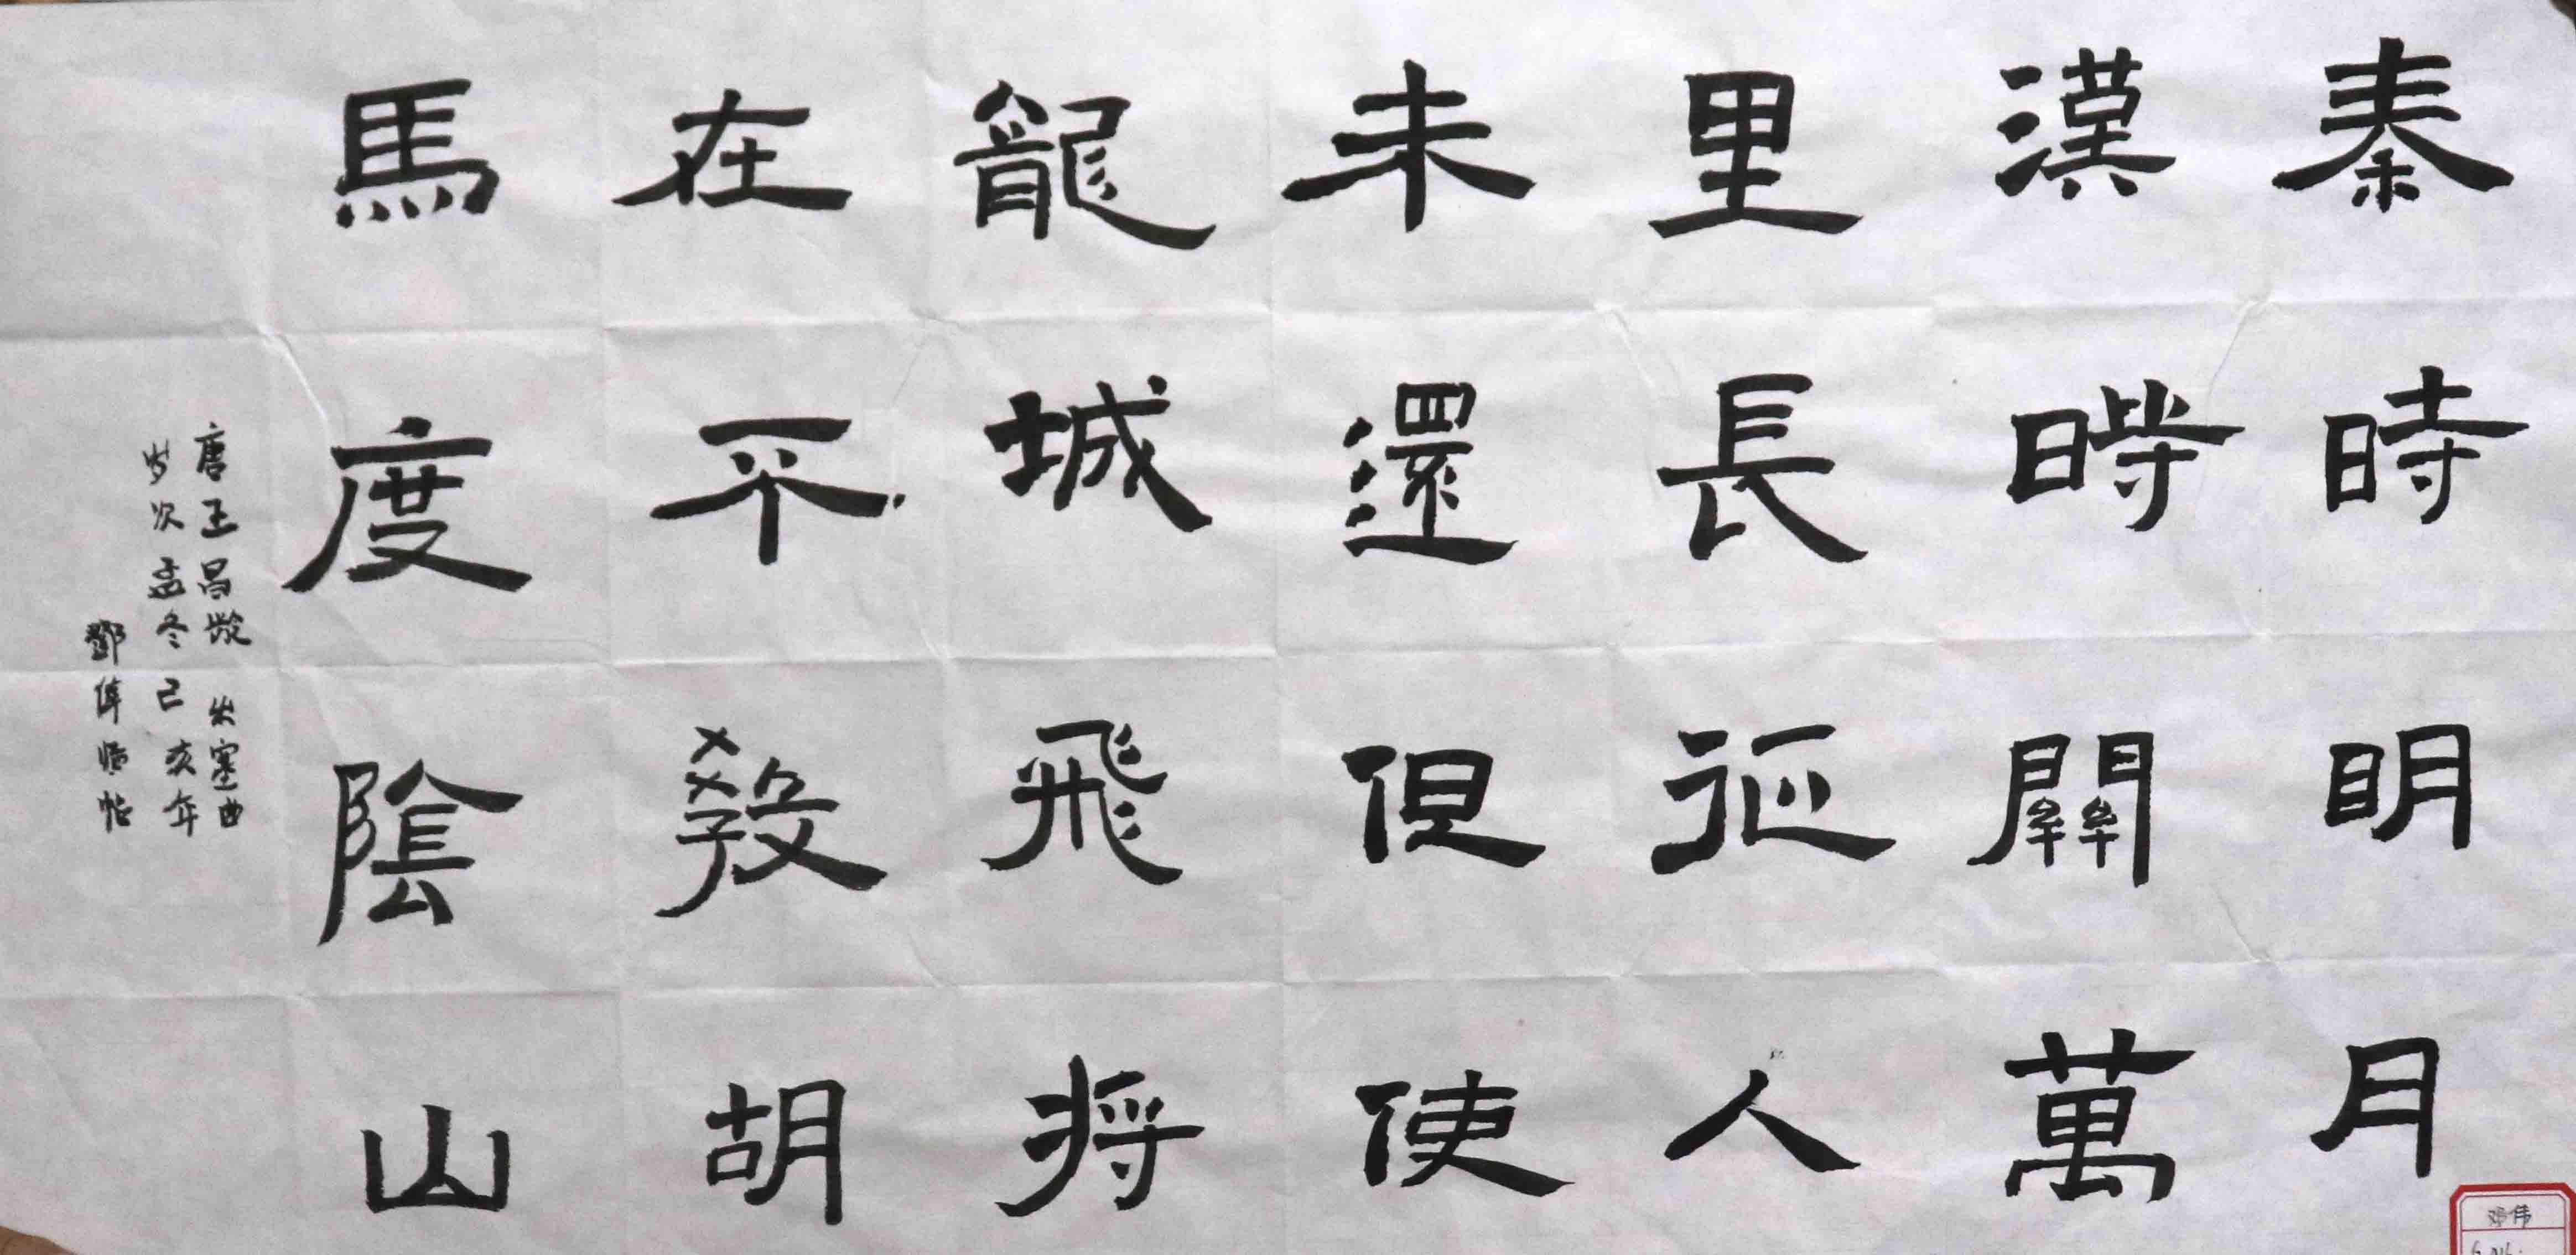 秦時明月
漢時關萬
里長征人
未還但使
龍城飛将
在不教胡
馬度陰山
唐王昌龄 出塞曲
岁次孟冬己亥年
鄧偉临帖
邓伟